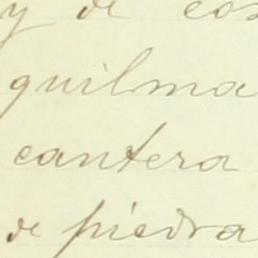 y de cos
quilma
cantera
de piedra